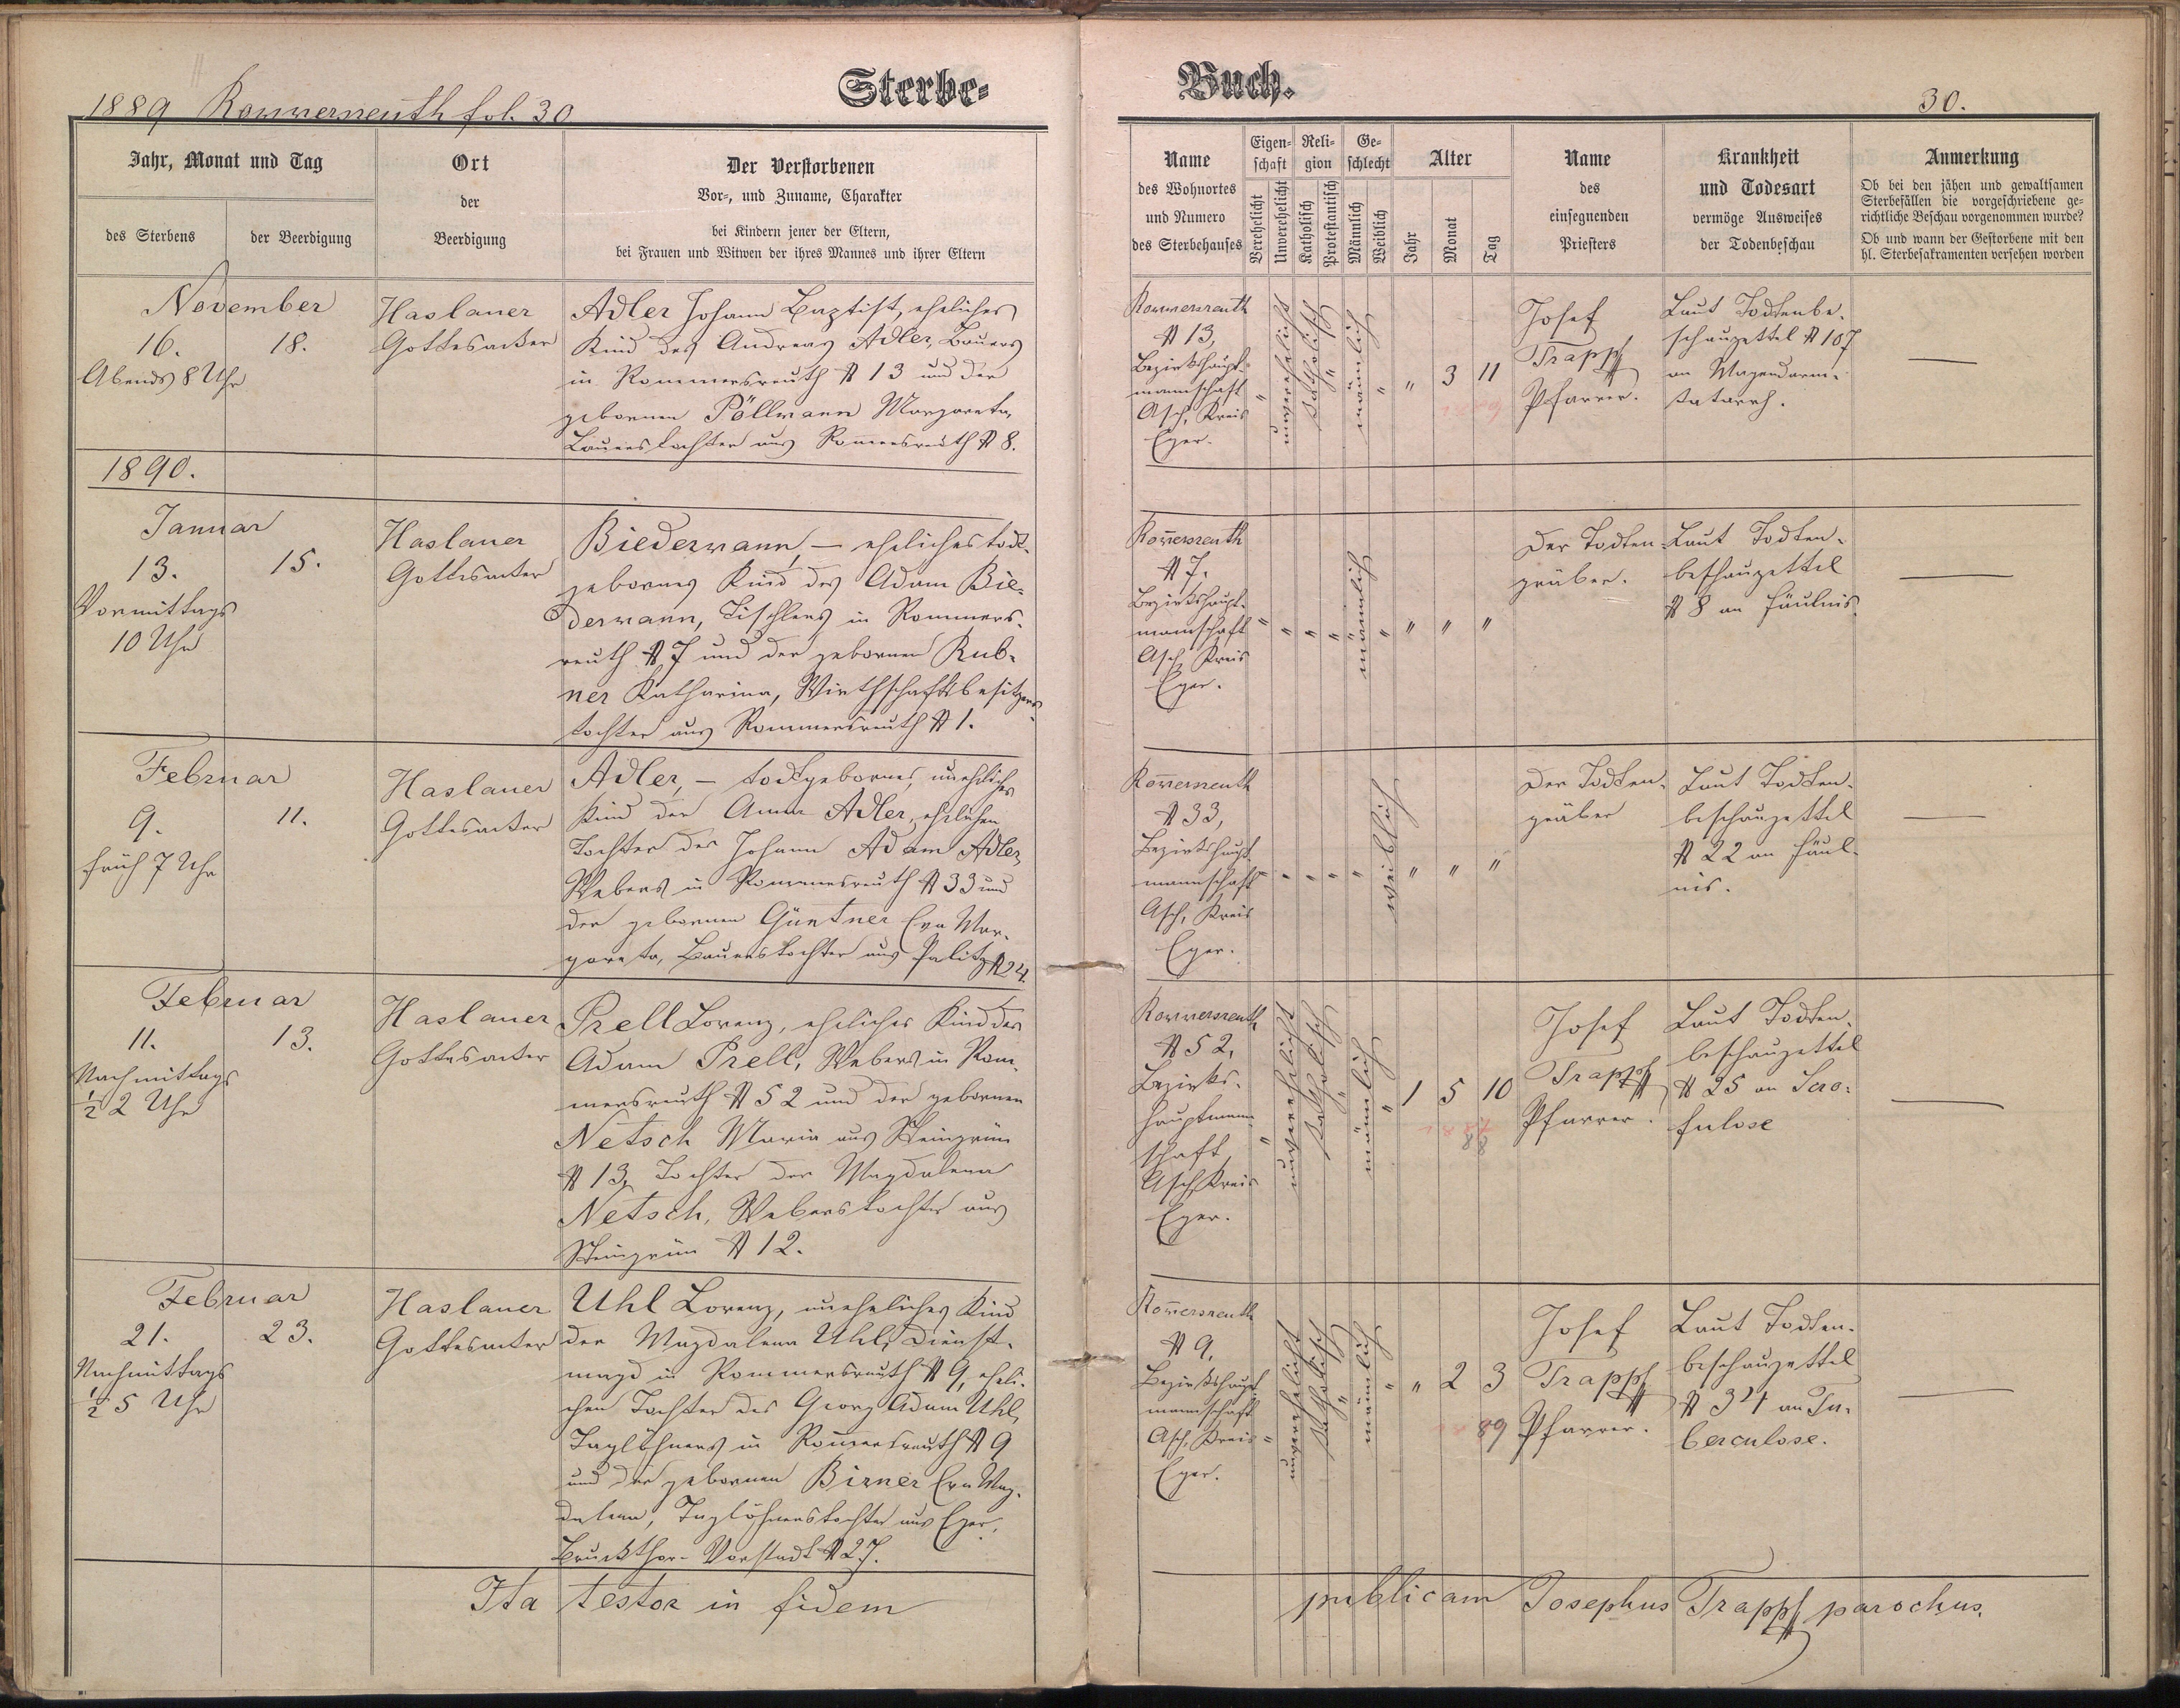 1889 Rommersreuth fol. 30
Sterbe-
Buch.
30.
Jahr, Monat und Tag
des Sterbens
der Beerdigung
Ort
der
Beerdigung
Der Verstorbenen
Vor-, und Zuname, Charakter
bei Kindern jener der Eltern,
bei Frauen und Witwen der ihres Mannes und ihrer Eltern
Name
des Wohnortes
und Numero
des Sterbehauses
Eigen-
schaft
Verehelicht
Unverehelicht
Reli-
gion
Katholisch
Protestantisch
Ge-
schlecht
Männlich
Weiblich
Alter
Jahr
Monat
Tag
Name
des
einsegnenden
Priesters
Krankheit
und Todesart
vermöge Ausweises
der Todenbeschau
Anmerkung
Ob bei den jähen und gewaltsamen
Sterbefällen die vorgeschriebene ge-
richtliche Beschau vorgenommen wurde?
Ob und wann der Gestorbene mit den
hl. Sterbesakramenten versehen worden
November
16.
18.
Abends 8 Uhr
Haslauer
Gottesacker
Adler Johann Baptist, eheliches
Kind des Andreas Adler, Bauers
in Rommersreuth № 13 und der
gebornen Pöllmann Margareta,
Bauerstochter aus Rommersreuth № 8.
Rommersreuth
№ 13,
Bezirkshaupt-
mannschaft
Asch, Kreis
Eger.
"
unverehelicht
katholisch
"
männlich
"
"
3
11
Josef
Trapp
Pfarrer.
Laut Todtenbe-
schauzettel № 107
an Magendarm-
katarrh.
—
1890.
Januar
13.
15.
Vormittags
10 Uhr
Haslauer
Gottesacker
Biedermann, — eheliches todt-
gebornes Kind des Adam Bie-
dermann, Tischlers in Rommers-
reuth № 7 und der gebornen Rub-
ner Katharina, Wirthschaftsbesitzers-
tochter aus Rommersreuth № 1.
Rom̅ersreuth
№ 7.
Bezirkshaupt-
mannschaft
Asch, Kreis
Eger.
"
"
"
"
männlich
"
"
"
"
Der Todten-
gräber.
Laut Todten-
beschauzettel
№ 8 an Fäulnis.
—
Februar
9.
11.
früh 7 Uhr
Haslauer
Gottesacker
Adler, — todtgebornes, uneheliches
Kind der Anna Adler, ehelichen
Tochter des Johann Adam Adler,
Webers in Rommersreuth № 33 und
der gebornen Güntner Eva Mar-
gareta, Bauerstochter aus Palitz № 24.
Rom̅ersreuth
№ 33,
Bezirkshaupt-
mannschaft
Asch, Kreis
Eger.
"
"
"
"
"
weiblich
"
"
"
Der Todten-
gräber
Laut Todten-
beschauzettel
№ 22 an Fäul-
nis.
—
Februar
11.
13.
Nachmittags
½ 2 Uhr
Haslauer
Gottesacker
Prell Lorenz, eheliches Kind des
Adam Prell, Webers in Rom-
mersreuth № 52 und der gebornen
Netsch Maria aus Steingrün
№ 13, Tochter der Magdalena
Netsch, Weberstochter aus
Steingrün № 12.
Rommersreuth
№ 52,
Bezirks-
hauptmann-
schaft
Asch, Kreis
Eger.
"
unverehelicht
katholisch
"
männlich
"
1
5
10
88
Josef
Trapp
Pfarrer.
Laut Todten-
beschauzettel
№ 25 an Scro-
fulose
—
Februar
21.
23.
Nachmittags
½ 5 Uhr
Haslauer
Gottesacker
Uhl Lorenz, uneheliches Kind
der Magdalena Uhl, Dienst-
magd in Rommersreuth № 9, eheli-
chen Tochter des Georg Adam Uhl,
Taglöhners in Rom̅ersreuth № 9
und der gebornen Birner Eva Mag-
dalena, Taglöhnerstochter aus Eger,
Bruckthor-Vorstadt № 27.
Rom̅ersreuth
№ 9,
Bezirkshaupt-
mannschaft
Asch, Kreis
Eger.
"
unverehelicht
katholisch
"
männlich
"
"
2
3
89
Josef
Trapp
Pfarrer.
Laut Todten-
beschauzettel
№ 34 an Tu-
berculose.
—
Ita testor in fidem publicam Josephus Trapp parochus.